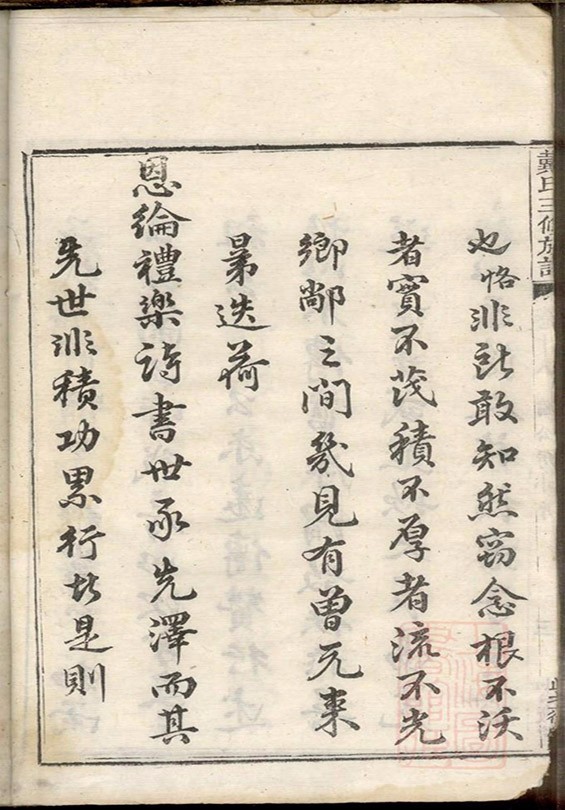 戴氏三修族譜
也恪非所敢知然竊念根不沃
者實不茂積不厚者流不光
鄉鄰之間幾見有曾元来
昆迭荷
恩綸禮樂詩書世承先澤而其
先世非積功累行者是則